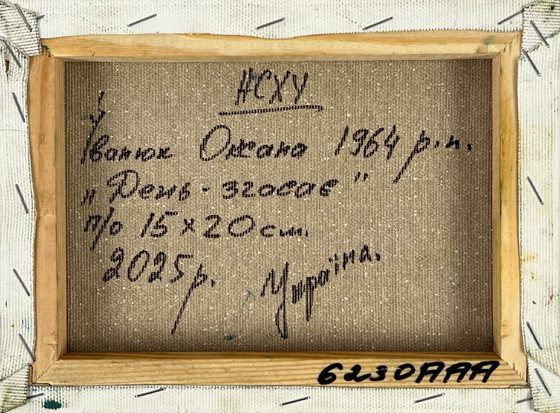 НСХУ
Іванюк Оксана 1964 р.н.
„День-згасає"
п/о 15×20см.
2025р. Україна.
6230AAA